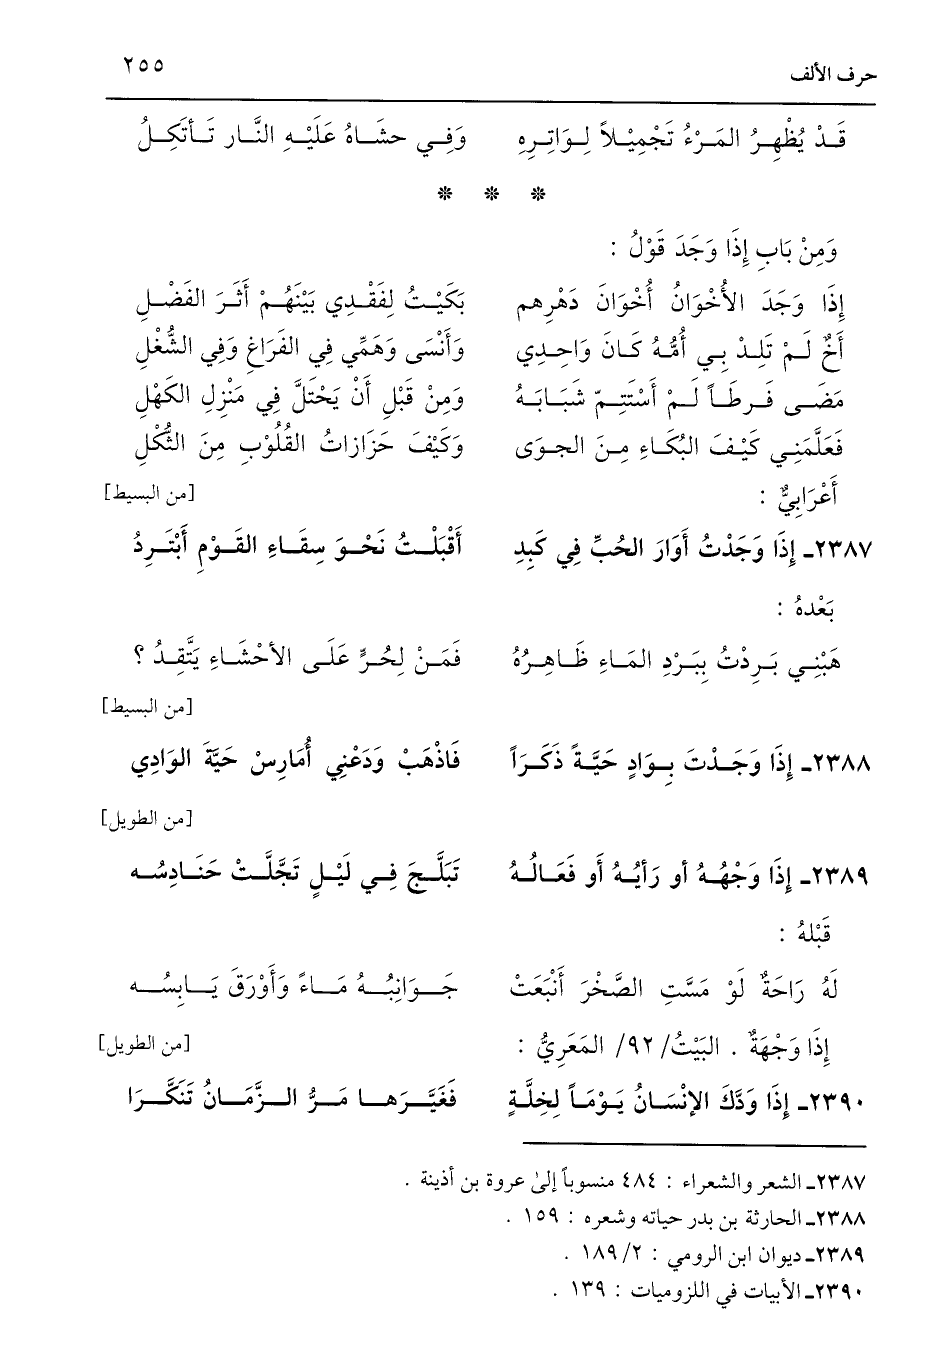 حرف الألف ٢٥٥
قَدْ يُظْهِرُ المَرْءُ تَجْمِيْلاً لِوَاتِرِهِ وَفِي حشَاهُ عَلَيْهِ النَّار تَأتَكِلُ
* * *
وَمِنْ بَابِ إِذَا وَجَدَ قَوْلُ :
إِذَا وَجَدَ الأُخْوَانُ أُخْوَانَ دَهْرِهم بَكَيْتُ لِفَقْدِي بَيْنَهُمْ أَثَرَ الفَضْلِ
أَخٌ لَمْ تَلِدْ بِي أُمُّهُ كَانَ وَاحِدِي وَأُنْسَى وَهَمِّي فِي الفَرَاغِ وَفِي الشُّغْلِ
مَضَى فَرطَاً لَمْ أَسْتَتِمّ شَبَابَهُ وَمِنْ قَبْلِ أَنْ يَحْتَلَّ فِي مَنْزِلِ الكَهْلِ
فَعَلَّمَنِي كَيْفَ البُكَاءِ مِنَ الجوَى وَكَيْفَ حَزَازاتُ القُلُوْبِ مِنَ الثُّكْلِ
أَعْرَابِيٌّ : [من البسيط]
٢٣٨٧ـ إِذَا وَجَدْتُ أَوَارَ الحُبِّ فِي كَبِدِ أَقْبَلْتُ نَحْوَ سِقَاءِ القَوْمِ أَبْتَرِدُ
بَعْدهُ :
هَبْنِي بَرِدْتُ بِبَرْدِ المَاءِ ظَاهِرُهُ فَمَنْ لِحُرٍّ عَلَى الأحْشَاءِ يَتَّقِدُ ؟
[من البسيط]
٢٣٨٨ـ إِذَا وَجَدْتَ بِوَادٍ حَيَّةً ذَكَرَاً فَاذْهَبْ وَدَعْنِي أُمَارِسْ حَيَّةَ الوَادِي
[من الطويل]
٢٣٨٩ـ إِذَا وَجْهُهُ أو رَأيُهُ أو فَعَالُهُ تَبَلَّجَ فِي لَيْلٍ تَجَّلَتْ حَنَادِسُه
قَبْلهُ :
لَهُ رَاحَةٌ لَوْ مَسَّتِ الصَّخْرَ أَنْبَعَتْ جَوَانِبُهُ مَاءً وَأَوْرَقَ يَابِسُه
إِذَا وَجْهَةٌ . البَيْتُ/ ٩٢/ المَعَرِيُّ : [من الطويل]
٢٣٩٠ـ إِذَا وَدَّكَ الإنْسَانُ يَوْمَاً لِخِلَّةٍ فَغَيَّرَها مَرُّ الزَّمَانُ تَنَكَّرَا
٢٣٨٧ـ الشعر والشعراء : ٤٨٤ منسوباً إلىٰ عروة بن أذينة .
٢٣٨٨ـ الحارثة بن بدر حياته وشعره : ١٥٩ .
٢٣٨٩ـ ديوان ابن الرومي : ٢/ ١٨٩ .
٢٣٩٠ـ الأبيات في اللزوميات : ١٣٩ .